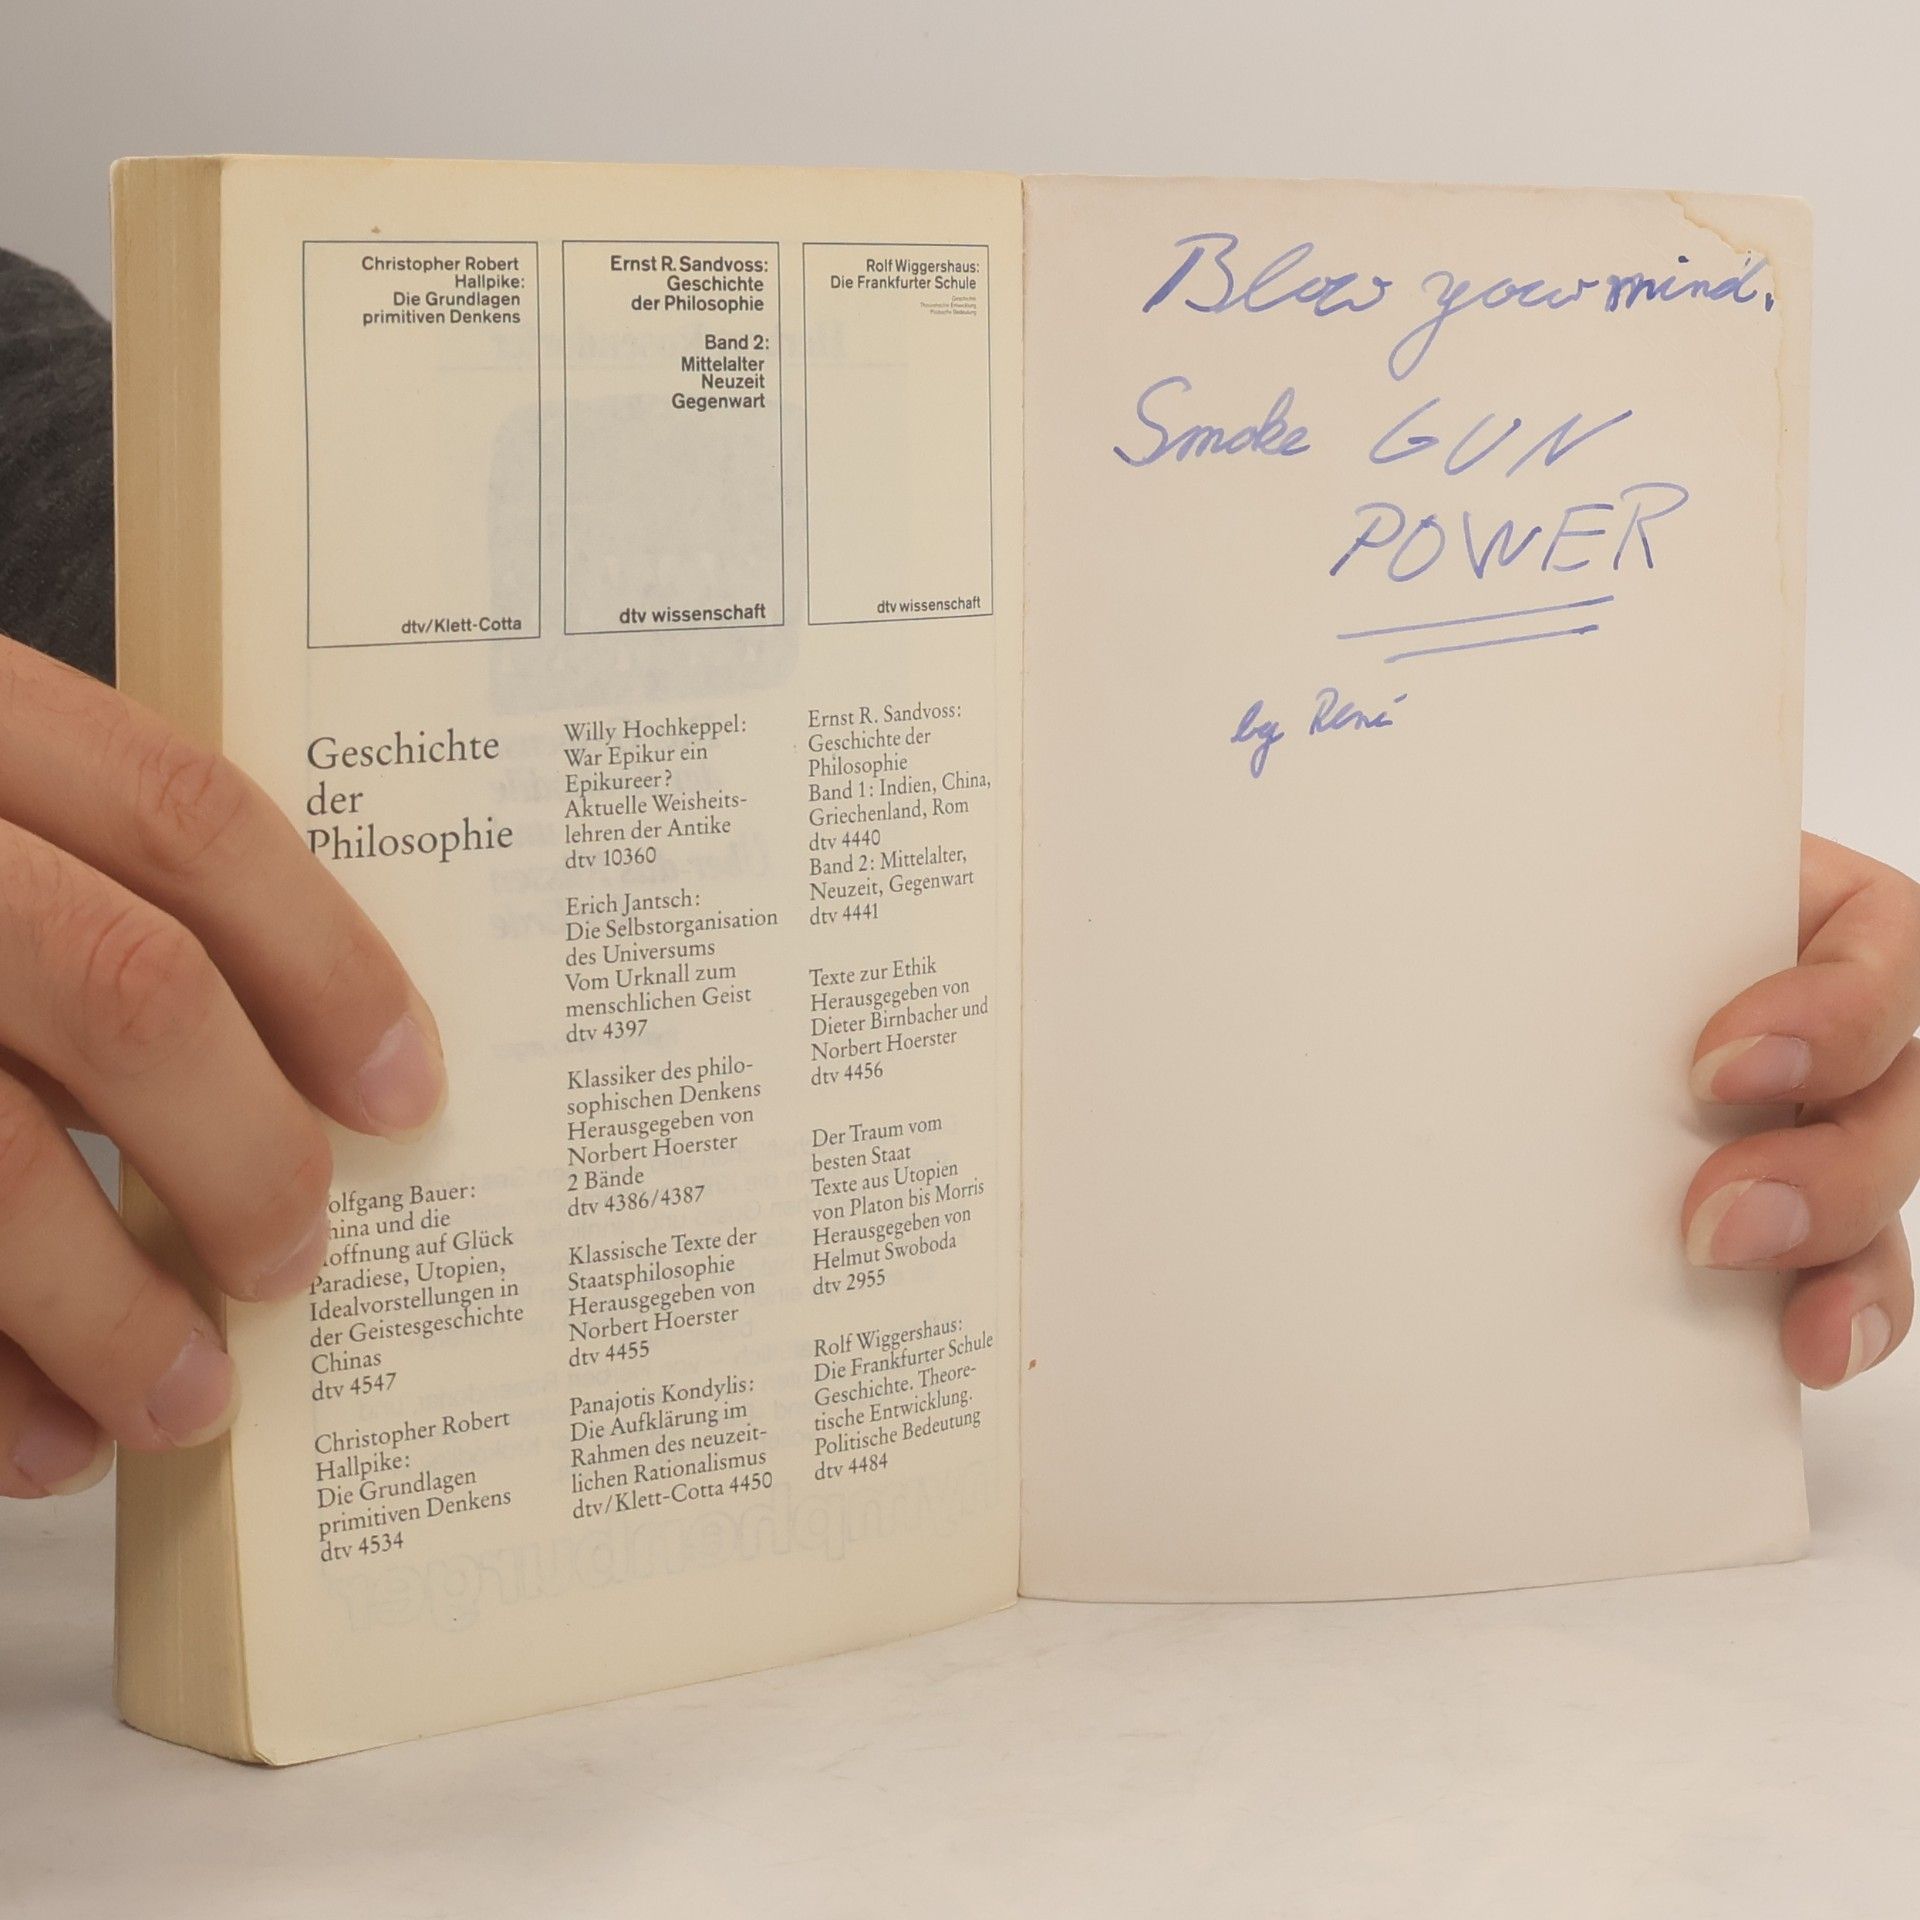 Christopher Robert
Hallpike:
Die Grundlagen
primitiven Denkens
dtv/Klett-Cotta
Ernst R. Sandvoss:
Geschichte
der Philosophie
Band 2:
Mittelalter
Neuzeit
Gegenwart
dtv wissenschaft
Rolf Wiggershaus:
Die Frankfurter Schule
Geschichte
Theoretische Entwicklung
Politische Bedeutung
dtv wissenschaft
Geschichte
der
Philosophie
olfgang Bauer:
hina und die
offnung auf Glück
Paradiese, Utopien,
Idealvorstellungen in
der Geistesgeschichte
Chinas
dtv 4547
Christopher Robert
Hallpike:
Die Grundlagen
primitiven Denkens
dtv 4534
Willy Hochkeppel:
War Epikur ein
Epikureer?
Aktuelle Weisheits-
lehren der Antike
dtv 10360
Erich Jantsch:
Die Selbstorganisation
des Universums
Vom Urknall zum
menschlichen Geist
dtv 4397
Klassiker des philo-
sophischen Denkens
Herausgegeben von
Norbert Hoerster
2 Bände
dtv 4386/4387
Klassische Texte der
Staatsphilosophie
Herausgegeben von
Norbert Hoerster
dtv 4455
Panajotis Kondylis:
Die Aufklärung im
Rahmen des neuzeit-
lichen Rationalismus
dtv/Klett-Cotta 4450
Ernst R. Sandvoss:
Geschichte der
Philosophie
Band 1: Indien, China,
Griechenland, Rom
dtv 4440
Band 2: Mittelalter,
Neuzeit, Gegenwart
dtv 4441
Texte zur Ethik
Herausgegeben von
Dieter Birnbacher und
Norbert Hoerster
dtv 4456
Der Traum vom
besten Staat
Texte aus Utopien
von Platon bis Morris
Herausgegeben von
Helmut Swoboda
dtv 2955
Rolf Wiggershaus:
Die Frankfurter Schule
Geschichte. Theore-
tische Entwicklung.
Politische Bedeutung
dtv 4484
Blow your mind.
Smoke GUN
POWER
by René